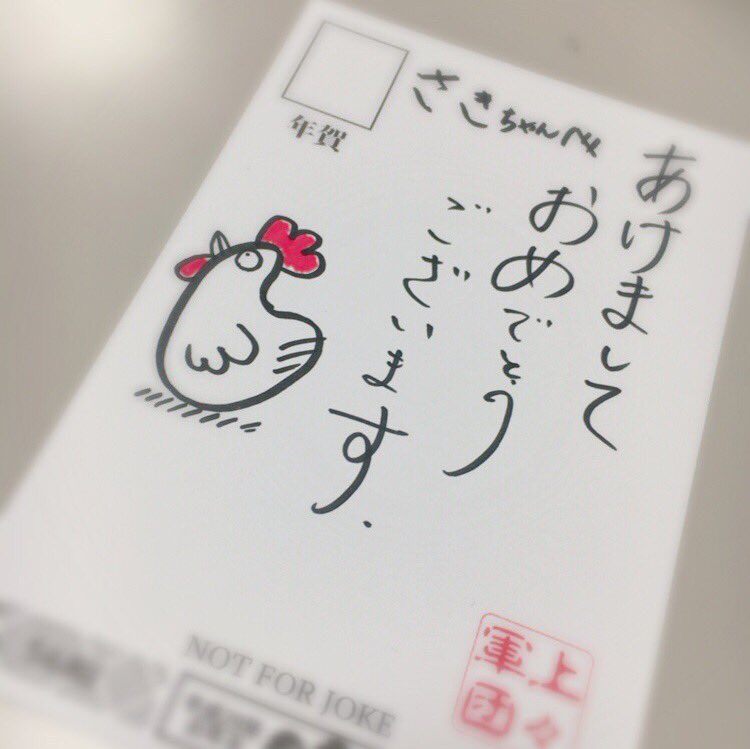 年賀
さきちゃんへ
あけまして
おめでとう
ございます.
NOT FOR JOKE
上々
軍団